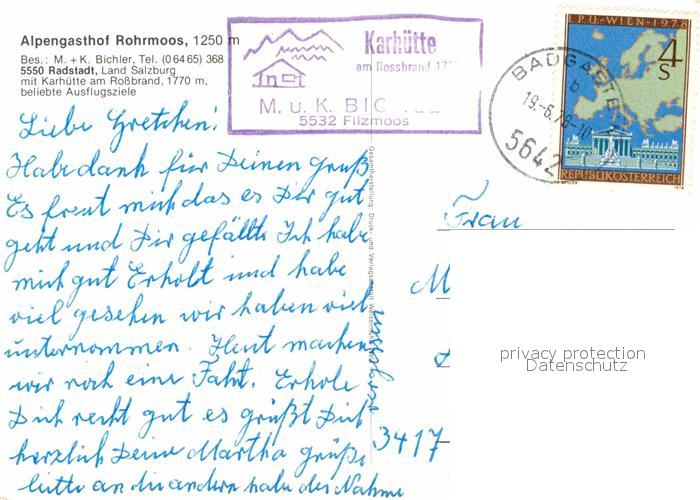 Alpengasthof Rohrmoos, 1250 m
Bes.: M. + K. Bichler, Tel. (0 64 65) 368
5550 Radstadt, Land Salzburg
mit Karhütte am Roßbrand, 1770 m,
beliebte Ausflugsziele
Karhütte
am Rossbrand 177
M. u. K. BIC
5532 Filzmoos
I.P.U.-WIEN-1978
4
S
REPUBLIK ÖSTERREICH
BADGASTEIN
b
19.-6.78-10
5642
Liebe Gretchen!
Habe dank für Deinen gruß
Es freut mich das es Dir gut
geht und Dir gefällt. Ich habe
mich gut Erholt und habe
viel gesehen wir haben viel
unternommen. Heut machen
wir noch eine Faht. Erhole
Dich recht gut es grüßt Dich
herzlich Deine Martha grüße
bitte an die andern habe der Nahme
Gesamtherstellung Druck- und Verlagsanstalt
Frau
M
3417
privacy protection
Datenschutz